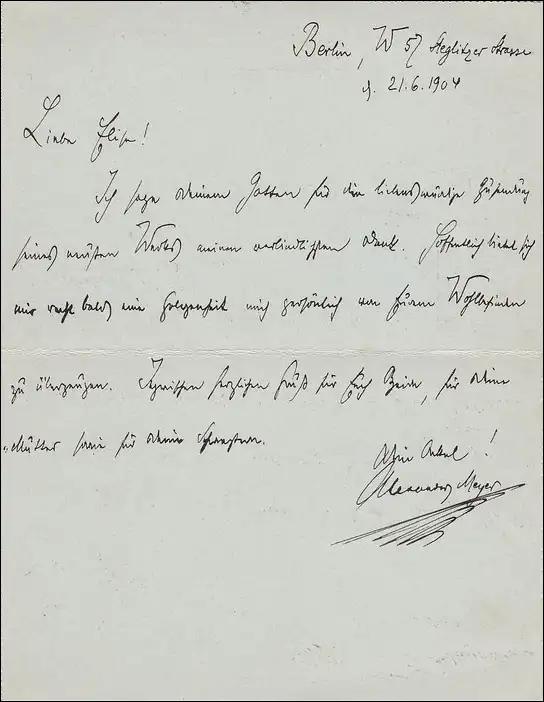 Berlin, W 57 Steglitzer Strasse
d. 21.6.1904
Liebe Elise!
Ich sage Deinem Gatten für die liebenswürdige Zusendung
seines neusten Werks meinen verbindlichsten Dank. Hoffentlich bietet sich
mir recht bald eine Gelegenheit mich persönlich von Eurem Wohlbefinden
zu überzeugen. Inzwischen herzlichen Gruß für Euch Beide, für Deine
Mutter sowie für Deine Schwestern.
Dein Onkel!
Alexander Meyer